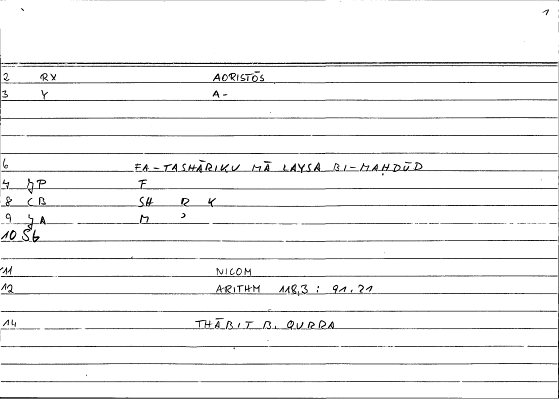 1
2 RX AORISTŌS
3 Y A-
6 FA-TASHĀRIKU MĀ LAYSA BI-MAḤDŪD
4 JP F
8 CB SH R K
9 JA M ʾ
10 Sb
11 NICOM
12 ARITHM 118,3 : 91.21
14 THĀBIT B. QURRA